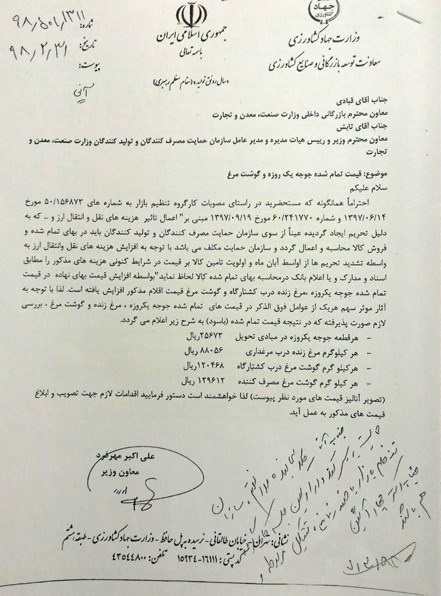 جهاد
کشاورزی
وزارت جهاد کشاورزی
معاونت توسعه بازرگانی و صنایع کشاورزی
جمهوری اسلامی ایران
باسمه تعالی
شماره:
تاریخ: ۹۸/۲/۳۱
پیوست:
جناب آقای قبادی
معاون محترم بازرگانی داخلی وزارت صنعت، معدن و تجارت
جناب آقای تابش
معاون محترم وزیر و رییس هیات مدیره و مدیر عامل سازمان حمایت مصرف کنندگان و تولید کنندگان وزارت صنعت، معدن و
تجارت
موضوع: قیمت تمام شده جوجه یک روزه و گوشت مرغ
سلام علیکم
احتراماً همانگونه که مستحضرید در راستای مصوبات کارگروه تنظیم بازار به شماره های ۵۰/۱۵۶۸۷۳ مورخ
۱۳۹۷/۰۶/۱۴ و شماره ۶۰/۲۴۱۷۷۰ مورخ ۱۳۹۷/۰۹/۱۹ مبنی بر" اعمال تاثیر هزینه های نقل و انتقال ارز و – که به
دلیل تحریم ایجاد گردیده عیناً از سوی سازمان حمایت مصرف کنندگان و تولید کنندگان باید در بهای تمام شده و
فروش کالا محاسبه و اعمال گردد و سازمان حمایت مکلف می باشد با توجه به افزایش هزینه های نقل وانتقال ارز به
واسطه تشدید تحریم ها از اواسط آبان ماه و اولویت تامین کالا بر قیمت در شرایط کنونی هزینه های مذکور را مطابق
اسناد و مدارک و یا اعلام بانک درمحاسبه بهای تمام شده کالا لحاظ نماید"بواسطه افزایش قیمت بهای نهاده در قیمت
تمام شده جوجه یکروزه ،مرغ زنده درب کشتارگاه و گوشت مرغ قیمت اقلام مذکور افزایش یافته است. لذا با توجه به
آثار موثر سهم هریک از عوامل فوق الذکر در قیمت های تمام شده جوجه یکروزه ، مرغ زنده و گوشت مرغ ، بررسی
لازم صورت پذیرفته که در نتیجه قیمت تمام شده (باسود) به شرح زیر اعلام می گردد.
- هرقطعه جوجه یکروزه در مبادی تحویل ۲۵۶۷۳ریال
- هر کیلوگرم مرغ زنده درب مرغداری ۸۸۰۵۶ ریال
- هر کیلو گرم گوشت مرغ درب کشتارگاه ۱۲۰۴۶۸ ریال
- هر کیلو گرم گوشت مرغ مصرف کننده ۱۲۹۶۱۲ ریال
(تصویر آنالیز قیمت های مورد نظر پیوست) لذا خواهشمند است دستور فرمایید اقدامات لازم جهت تصویب و ابلاغ
قیمت های مذکور به عمل آید.
علی اکبر مهرفرد
معاون وزیر
نشانی: تهران – خیابان طالقانی – نرسیده به پل حافظ – وزارت جهاد کشاورزی – طبقه هشتم
کد پستی: ۱۶۱۱۱-۱۵۹۳۴ تلفن: ۴۳۵۴۴۸۰۰